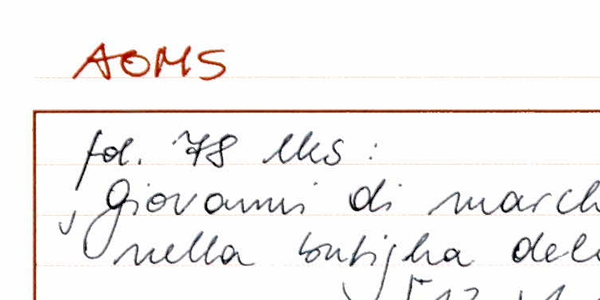 AOMS
fol. 78
Giovanni di march
nella bottigha del